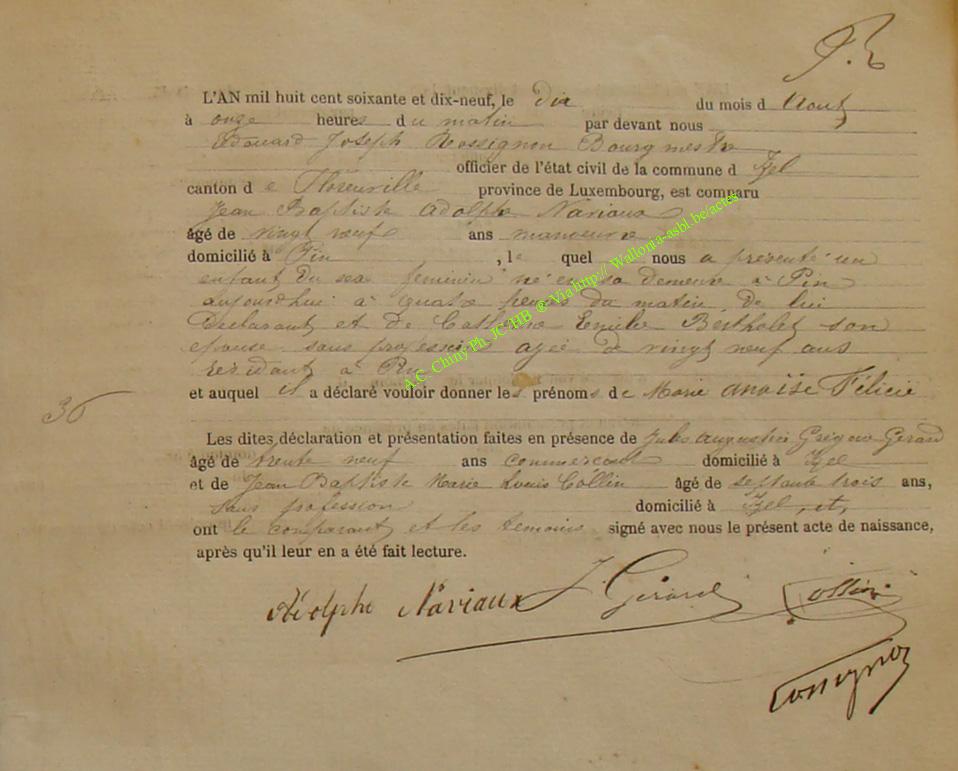 L'AN mil huit cent soixante et dix-neuf, le Dix du mois d Aout
à onze heures du matin par devant nous
Edouard Joseph Rossignon Bourgmestre
officier de l'état civil de la commune d Izel
canton de Florenville province de Luxembourg, est comparu
Jean Baptiste Adolphe Naviaux
âgé de vingt neuf ans manoeuvre
domicilié à Pin, le quel nous a présenté un
enfant du sexe feminin né en sa demeure à Pin
aujourdhui à quatre heures du matin de lui
Declarant et de Emilie Bertholet son
epouse sans profession agée de vingt neuf ans
residant à Pin
et auquel il a déclaré vouloir donner les prénoms de Marie Anaïse Félicie
36
Les dites déclaration et présentation faites en présence de Jules Augustin Gérard
âgé de trente neuf ans commercant domicilié à Izel
et de Jean Baptiste Marie Louis Collin âgé de septante trois ans,
sans profession domicilié à Izel, et,
ont le comparant et les temoins signé avec nous le présent acte de naissance,
après qu'il leur en a été fait lecture.
Adolphe Naviaux J. Gérard Collin
Rossignon
A.C. Chiny Ph. JC/HB ® Via http:// Wallonia-asbl.be/actes